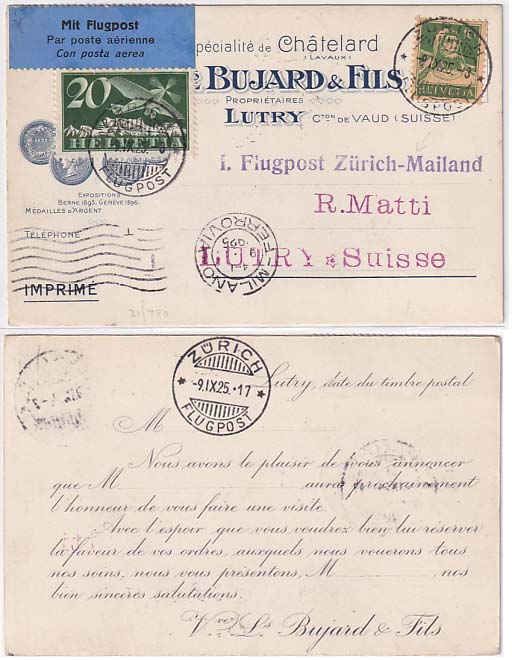 Mit Flugpost
Par poste aérienne
Con posta aerea
pécialité de Châtelard
(LAVAUX)
BUJARD & FILS
PROPRIÉTAIRES
LUTRY CTON DE VAUD (SUISSE)
20
HELVETIA
FLUGPOST
10
HELVETIA
-9.IX.25.-8
FLUGPOST
I. Flugpost Zürich-Mailand
R. Matti
LUTRY Suisse
EXPOSITIONS
BERNE 1895. GENÈVE 1896.
MÉDAILLES D'ARGENT
TÉLÉPHONE
IMPRIMÉ
MILANO
FERROVIA
21/780
ZÜRICH
-9.IX.25.-17
FLUGPOST
Lutry, date du timbre postal
M
Nous avons le plaisir de vous annoncer
que M aura prochainement
l'honneur de vous faire une visite.
Avec l'espoir que vous voudrez bien lui réserver
la faveur de vos ordres, auxquels nous vouerons tous
nos soins, nous vous présentons, M , nos
bien sincères salutations.
Vve Ls Bujard & Fils